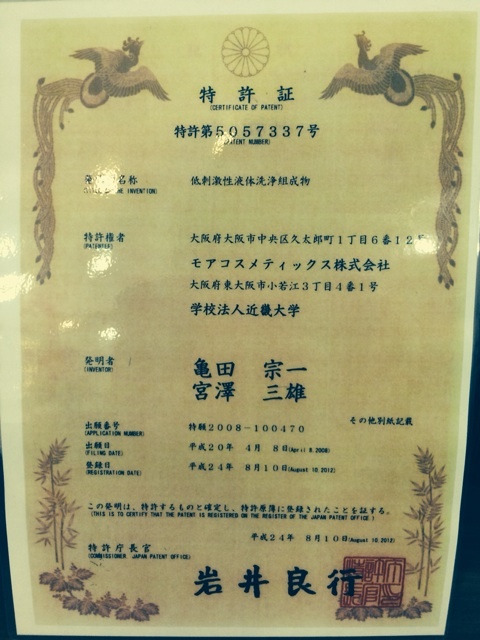 特許証
(CERTIFICATE OF PATENT)
特許第5057337号
(PATENT NUMBER)
名称 低刺激性液体洗浄組成物
THE INVENTION)
特許権者 大阪府大阪市中央区久太郎町1丁目6番12号
(PATENTEE)
モアコスメティックス株式会社
大阪府東大阪市小若江3丁目4番1号
学校法人近畿大学
発明者 亀田 宗一
(INVENTOR)
宮澤 三雄
その他別紙記載
出願番号 特願2008-100470
(APPLICATION NUMBER)
出願日 平成20年 4月 8日(April 8,2008)
(FILING DATE)
登録日 平成24年 8月10日(August 10,2012)
(REGISTRATION DATE)
この発明は、特許するものと確定し、特許原簿に登録されたことを証する。
(THIS IS TO CERTIFY THAT THE PATENT IS REGISTERED ON THE REGISTER OF THE JAPAN PATENT OFFICE.)
平成24年 8月10日(August 10,2012)
特許庁長官
(COMMISSIONER, JAPAN PATENT OFFICE)
岩井良行